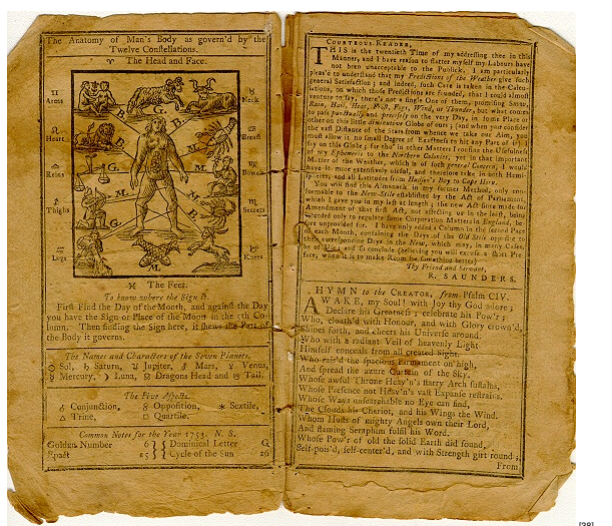 The Anatomy of Man's Body as govern'd by the
Twelve Constellations.
♈ The Head and Face.
♊
Arms
♉
Neck
♌
Heart
Breast
♎
Reins
Bowels
♐
Thighs
♏
Secrets
♒
Legs
♑
Knees
♓ The Feet.
To know where the Sign is.
First Find the Day of the Month, and against the Day
you have the Sign or Place of the Moon in the 5th Co
lumn. Then finding the Sign here, it shews the Part of
the Body it governs.
The Names and Characters of the Seven Planets.
☉ Sol, ♄ Saturn, ♃ Jupiter, ♂ Mars, ♀ Venus,
☿ Mercury, ☽ Luna, ☊ Dragons Head and ☋ Tail.
The Five Aspects.
☌ Conjunction, ☍ Opposition, ✶ Sextile,
△ Trine, □ Quartile.
Common Notes for the Year 1753. N. S.
Golden Number 6 } { Dominical Letter G
Epact 25 } { Cycle of the Sun 26
COURTEOUS READER,
THIS is the twentieth Time of my addressing thee in this
Manner, and I have reason to flatter myself my Labours have
not been unacceptable to the Publick. I am particularly
pleas'd to understand that my Predictions of the Weather give such
general Satisfaction; and indeed, such Care is taken in the Calcu-
lations, on which those Predictions are founded, that I could almost
venture to say, there's not a single One of them, promising Snow,
Rain, Hail, Heat, Frost, Fogs, Wind, or Thunder, but what comes
to pass punctually and precisely on the very Day, in some Place or
other on this little diminutive Globe of ours; (and when you consider
the vast Distance of the Stars from whence we take our Aim, you
must allow it no small Degree of Exactness to hit any Part of it) I
say on this Globe; for tho' in other Matters I confine the Usefulness
of my Ephemeris to the Northern Colonies, yet in that important
Matter of the Weather, which is of such general Concern, I would
have it more extensively useful, and therefore take in both Hemi-
spheres, and all Latitudes from Hudson's Bay to Cape Horn.
You will find this Almanack in my former Method, only con-
formable to the New-Stile established by the Act of Parliament,
which I gave you in my last at length; the new Act since made for
Amendment of that first Act, not affecting us in the least, being
intended only to regulate some Corporation Matters in England, be-
fore unprovided for. I have only added a Column in the second Page
of each Month, containing the Days of the Old Stile opposite to
their corresponding Days in the New, which may, in many Cases,
be of Use; and so conclude (believing you will excuse a short Pre-
face, when it is to make Room for something better)
Thy Friend and Servant,
R. SAUNDERS.
HYMN to the CREATOR, from Psalm CIV.
AWAKE, my Soul! with Joy thy God adore;
Declare his Greatness; celebrate his Pow'r;
Who, cloath'd with Honour, and with Glory crown'd,
Shines forth, and cheers his Universe around.
Who with a radiant Veil of heavenly Light
Himself conceals from all created Sight.
Who rais'd the spacious Firmament on high,
And spread the azure Curtain of the Sky.
Whose awful Throne Heav'n's starry Arch sustains,
Whose Presence not Heav'n's vast Expanse restrains.
Whose Ways unsearchable no Eye can find,
The Clouds his Chariot, and his Wings the Wind.
Whom Hosts of mighty Angels own their Lord,
And flaming Seraphim fulfil his Word.
Whose Pow'r of old the solid Earth did found,
Self-pois'd, self-center'd, and with Strength girt round;
From